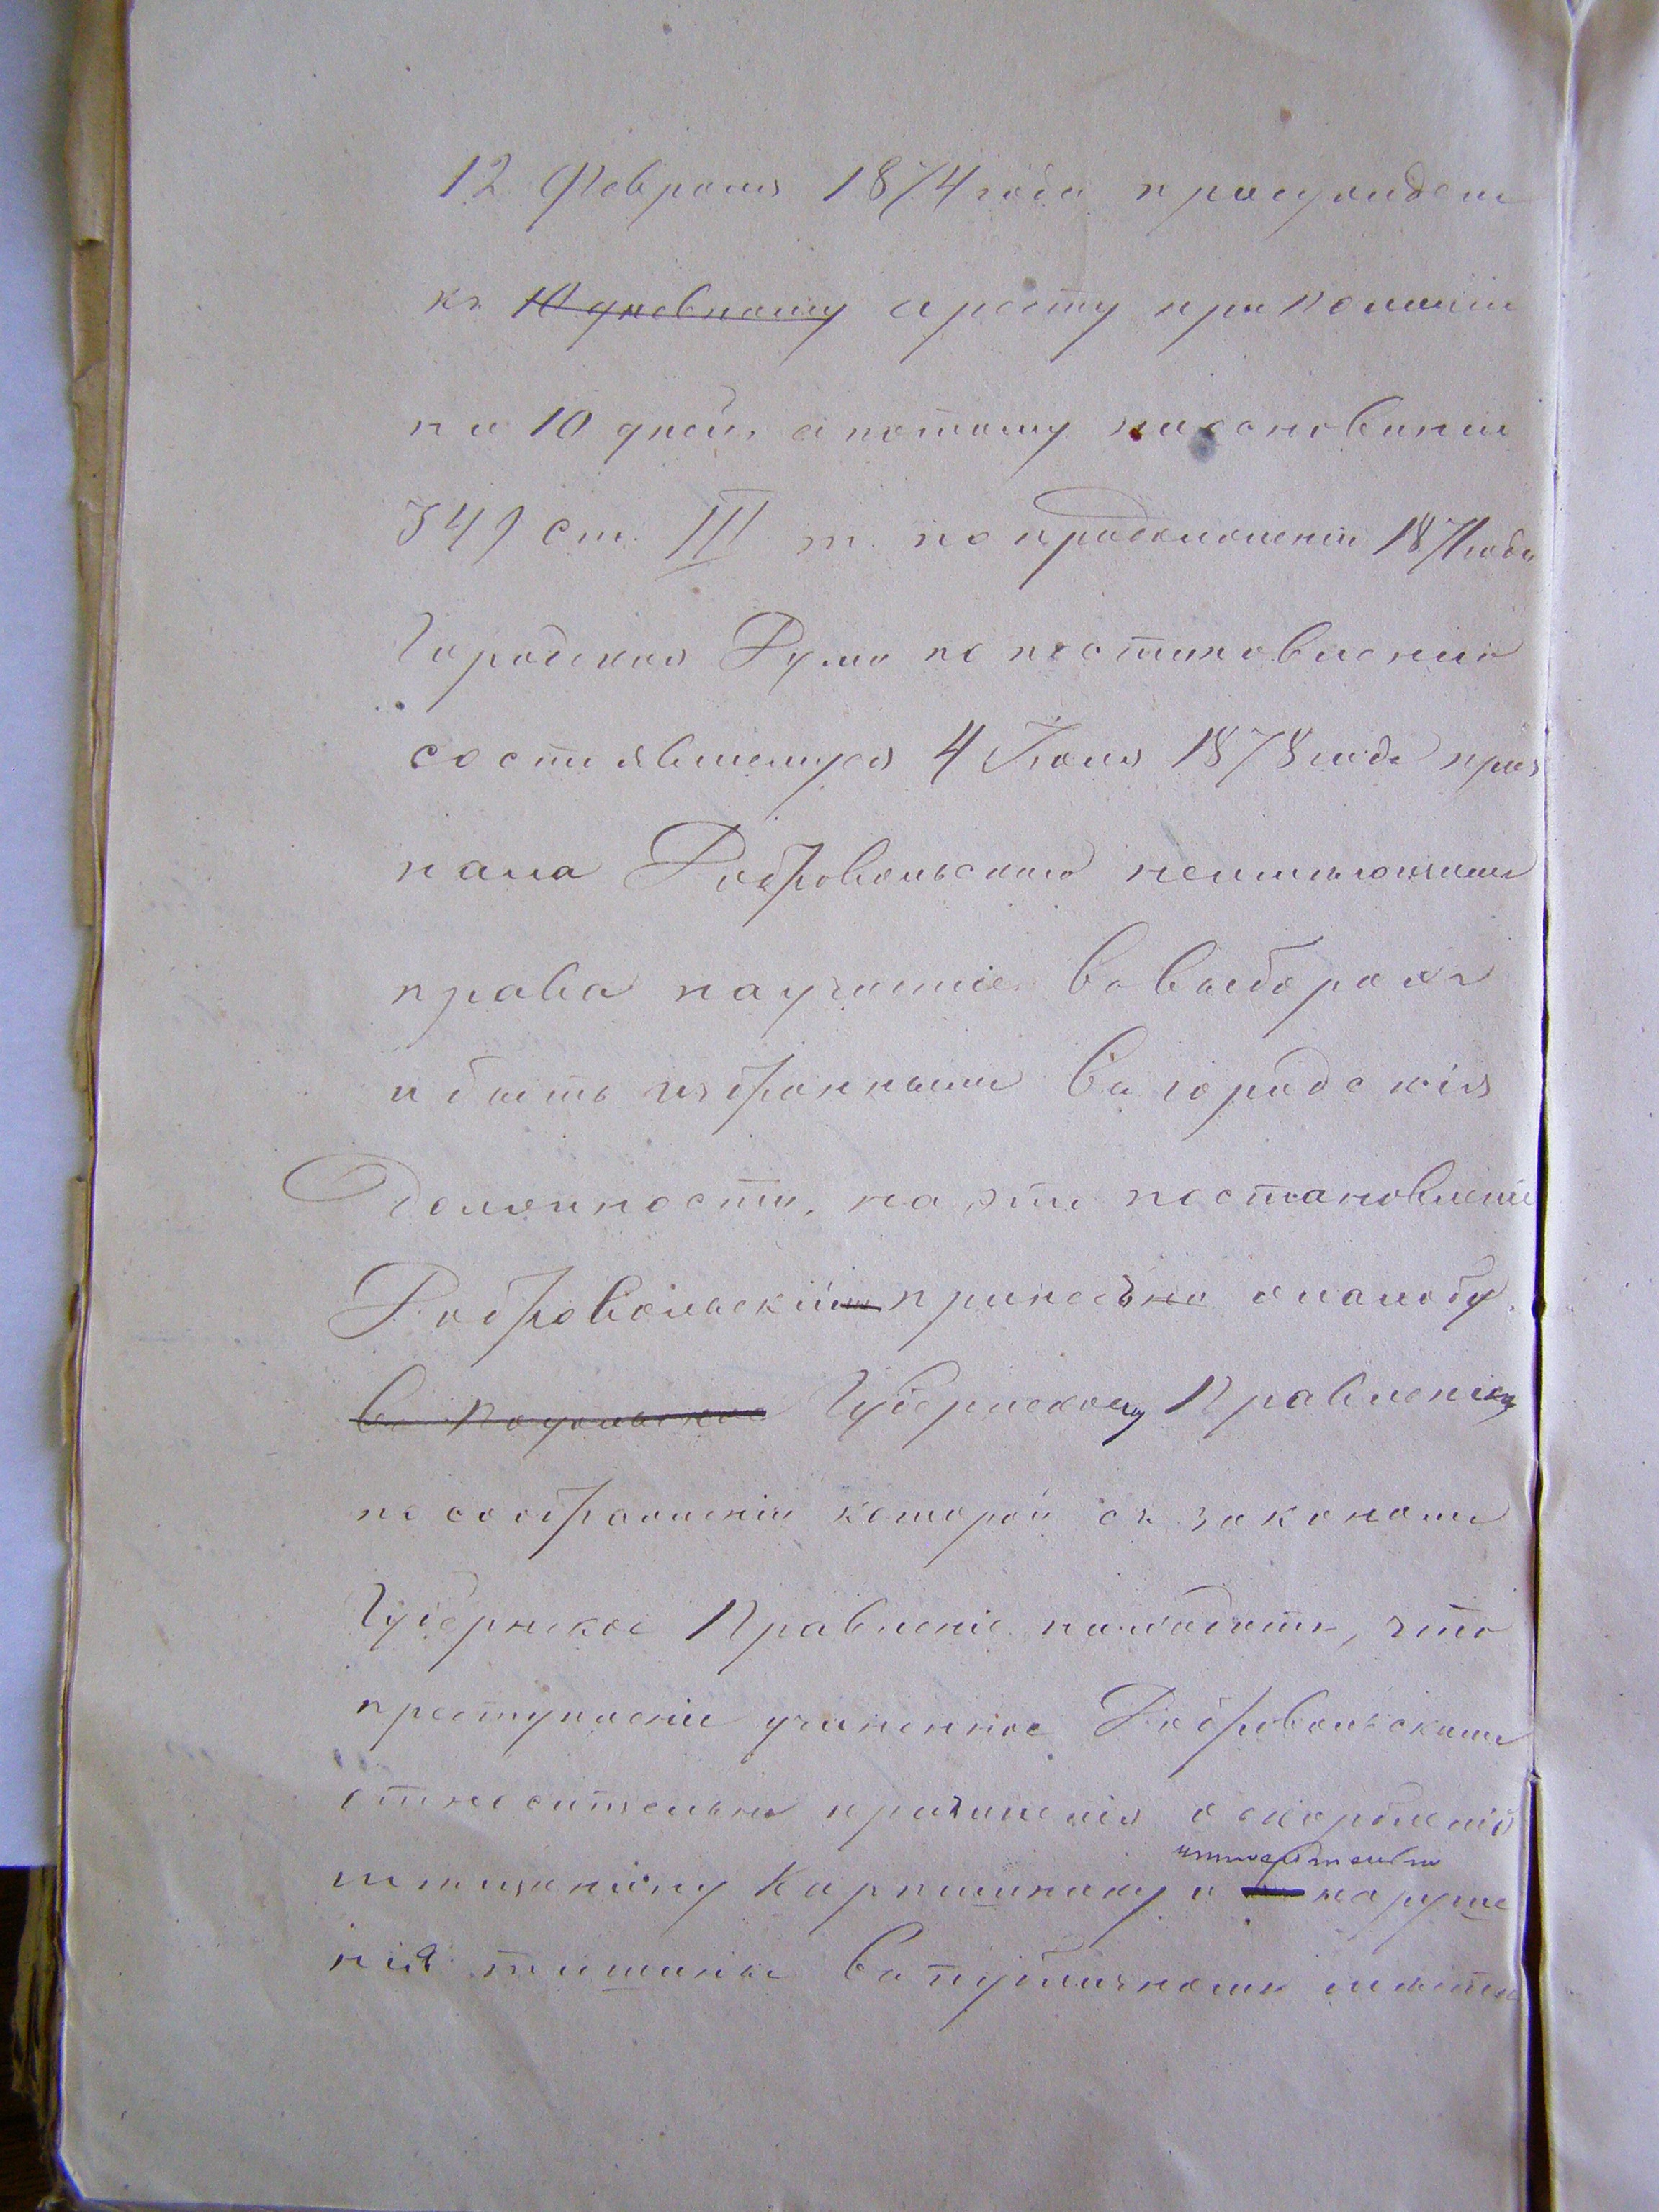 12 Февраля 1874 года присужденъ
къ 10 дневному аресту при Полиціи
на 10 дней, а потому на основаніи
349 ст. III т. по продолженію 1871 года
Городская Дума по постановленію
состоявшемуся 4 Іюля 1878 года приз
нала Добровольскаго неимѣющимъ
права на участіе въ выборахъ
и быть избраннымъ въ городскія
должности, на это постановленіе
Добровольскій принесъ жалобу
въ Подольское Губернскому Правленію
по соображеніи которой съ законами
Губернское Правленіе находитъ, что
преступленіе учиненное Добровольскимъ
относительно причиненія оскорбленій
мѣщанину и наруше
нія тишины въ публичномъ мѣстѣ